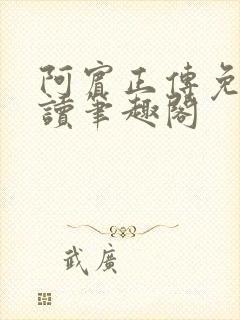 阿賓正傳免
讀筆趣閣
武廣